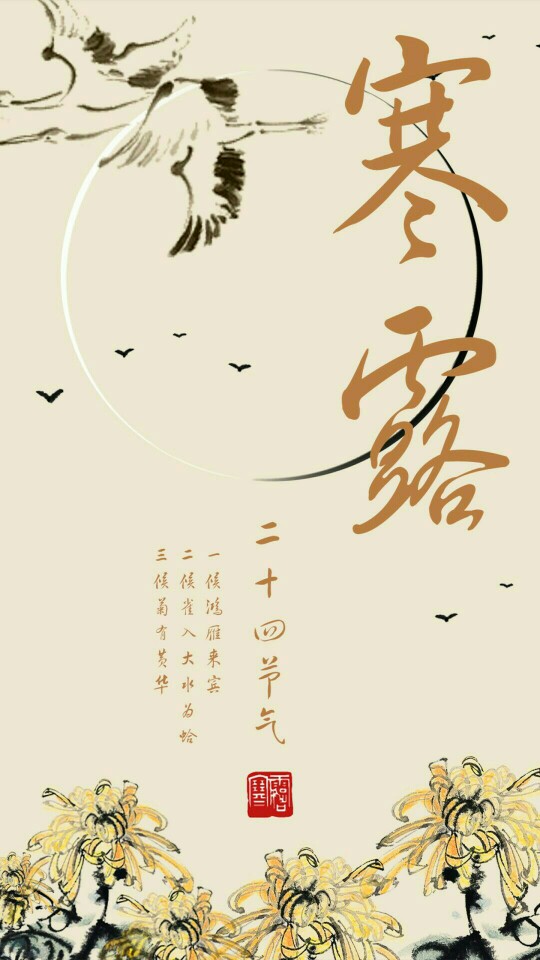 寒露
二十四节气
一候鸿雁来宾
二候雀入大水为蛤
三候菊有黄华
寒露